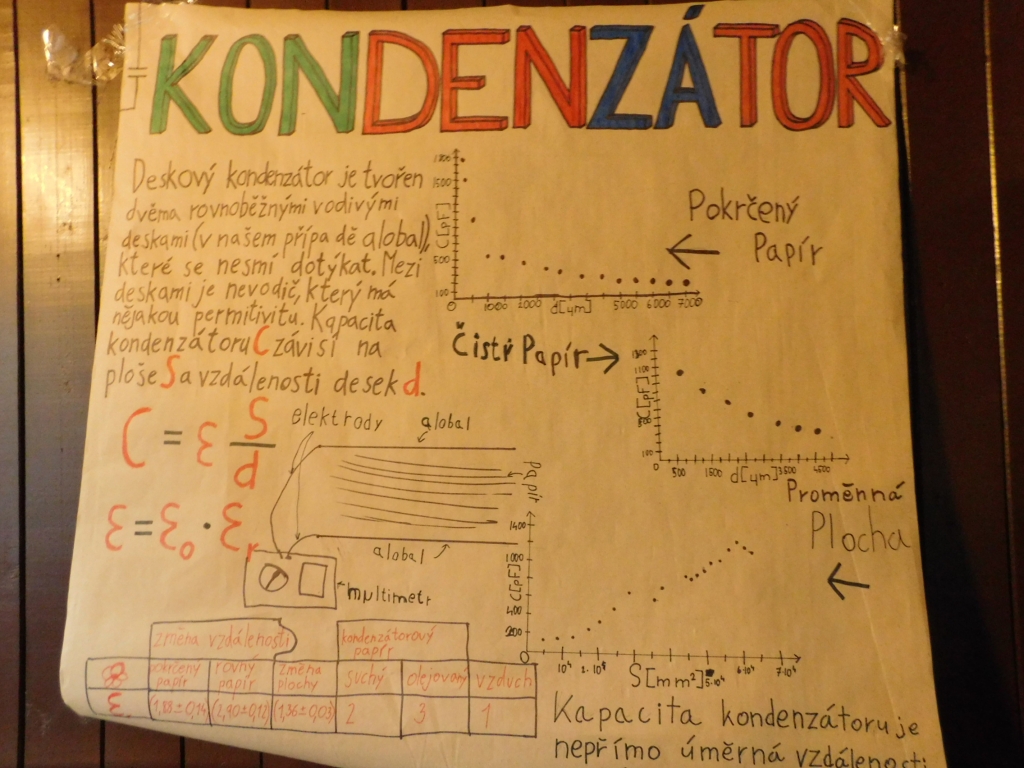 KONDENZÁTOR
Deskový kondenzátor je tvořen
dvěma rovnoběžnými vodivými
deskami (v našem případě alobal),
které se nesmí dotýkat. Mezi
deskami je nevodič, který má
nějakou permitivitu. Kapacita
kondenzátoru C závisí na
ploše S a vzdálenosti desek d.
C = ε S/d
ε = ε₀ · εᵣ
C[pF]
1500
500
100
0
1000 2000 5000 6000 7000
d[µm]
Pokrčený
Papír
Čistý Papír
C[pF]
1100
100
0
500 1500 3500 4500
d[µm]
elektrody
alobal
papír
alobal
multimetr
Proměnná
Plocha
C[pF]
1400
1000
400
200
0
10⁴ 2·10⁴ 5·10⁴ 6·10⁴ 7·10⁴
S[mm²]
změna vzdálenosti
kondenzátorový
papír
pokrčený
papír
rovný
papír
změna
plochy
suchý
olejovaný
vzduch
ε
(1,88±0,14)
(2,90±0,12)
(1,36±0,03)
2
3
1
Kapacita kondenzátoru je
nepřímo úměrná vzdálenosti